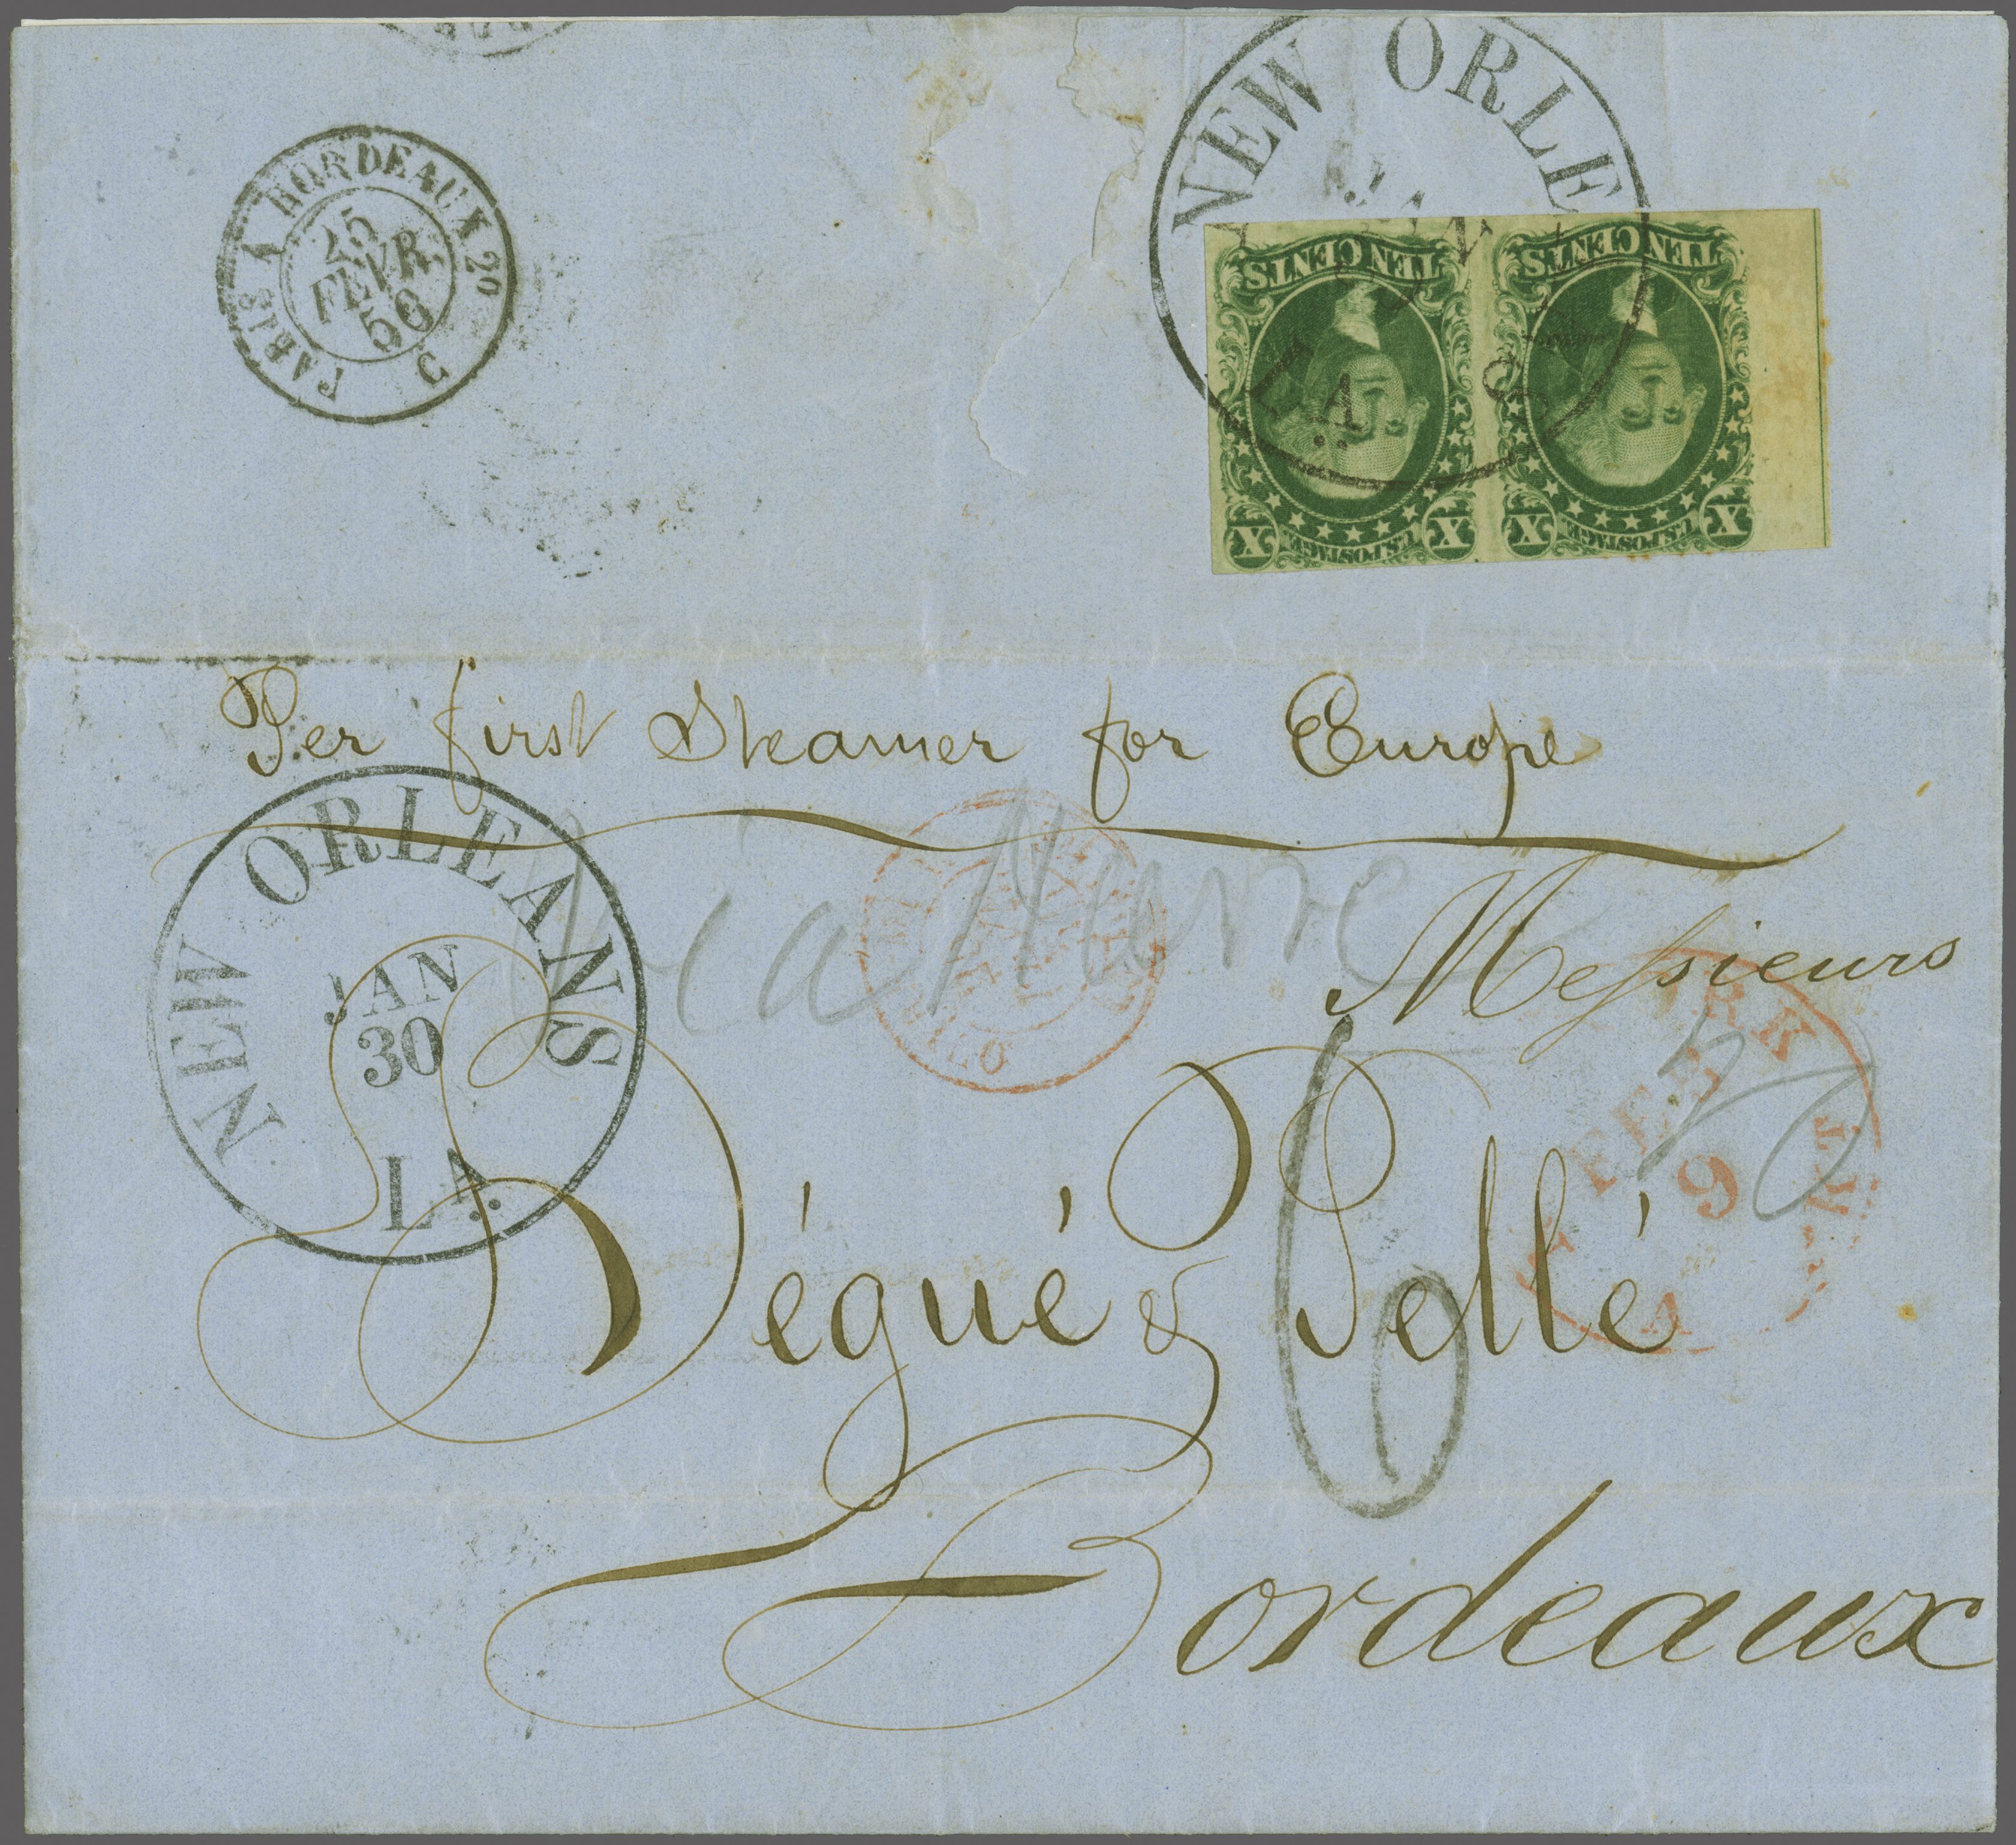 PARIS A BORDEAUX 20
25
FEVR.
56
NEW ORLE
JAN
LA.
TEN CENTS
TEN CENTS
X U.S. POSTAGE X
X U.S. POSTAGE X
Per first Steamer for Europe
NEW ORLEANS
JAN
30
LA.
via
Messieurs
Ségué & Pellé
Bordeaux
6
FEB
9